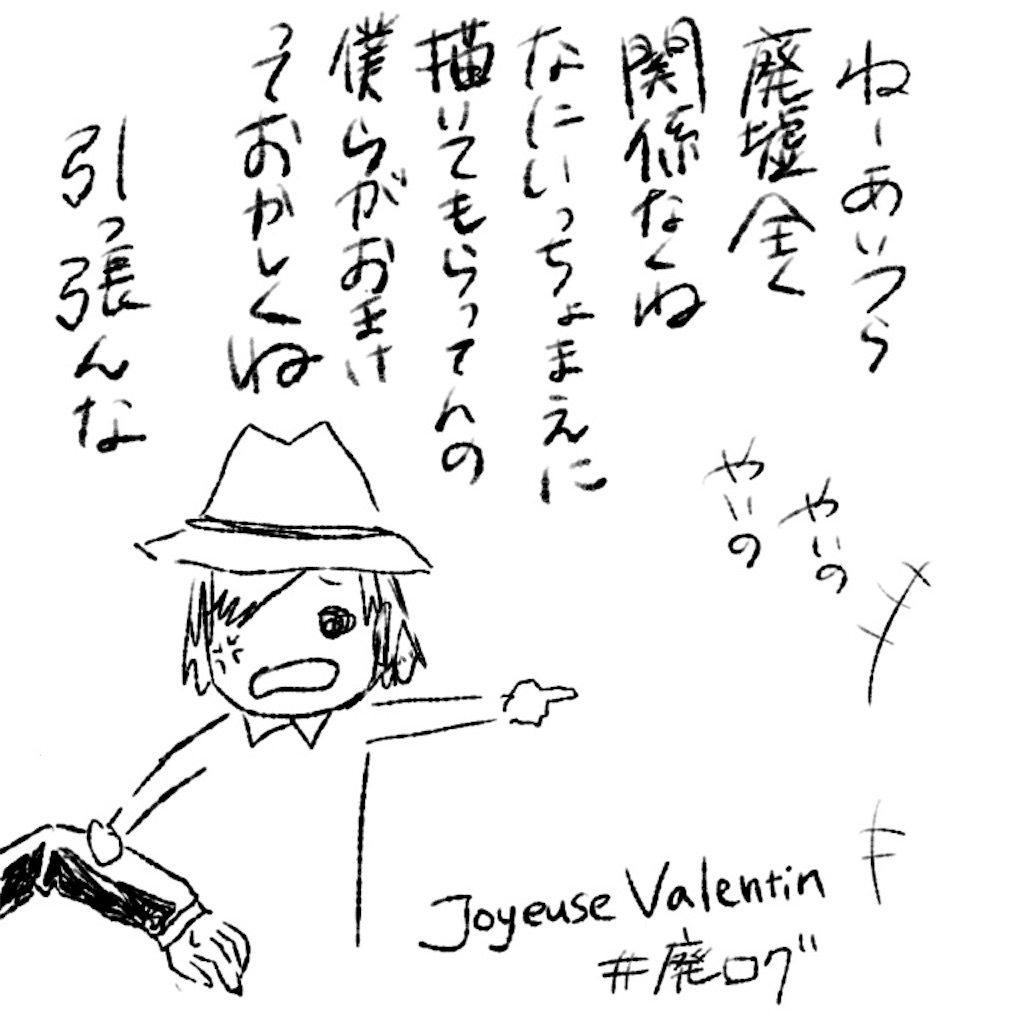 ねーあいつら
廃墟全く
関係なくね
なにいっちょまえに
描いてもらってんの
僕らがおまけ
っておかしくね
引っ張んな
やいの
やいの
Joyeuse Valentin
#廃ログ